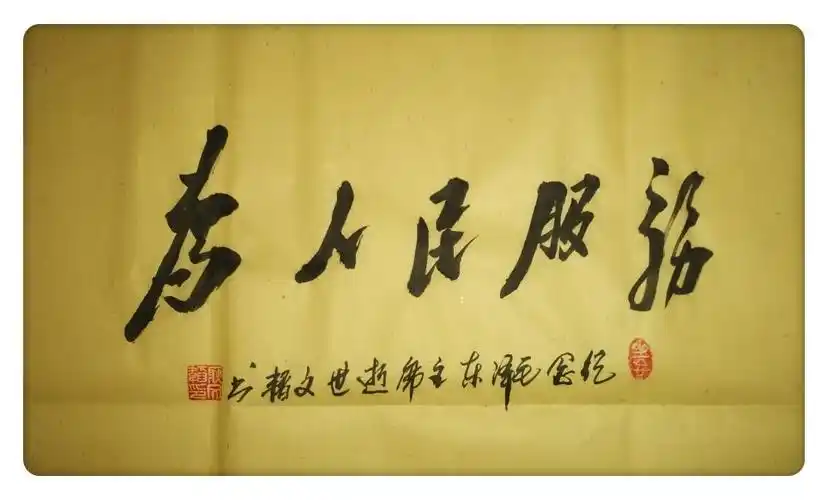 為人民服務
纪念毛泽东主席逝世文书